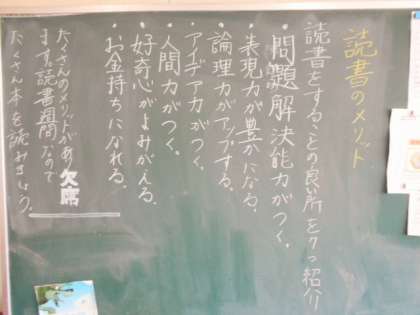 読書のメリット
読書をすることの良い所を7つ紹介
・問題解決能力がつく。
・表現力が豊かになる。
・論理力がアップする。
・アイデア力がつく。
・人間力がつく。
・好奇心がよみがえる。
・お金持ちになれる。
たくさんのメリットがあ
ります。読書週間なので
たくさん本を読みましょう。
欠席